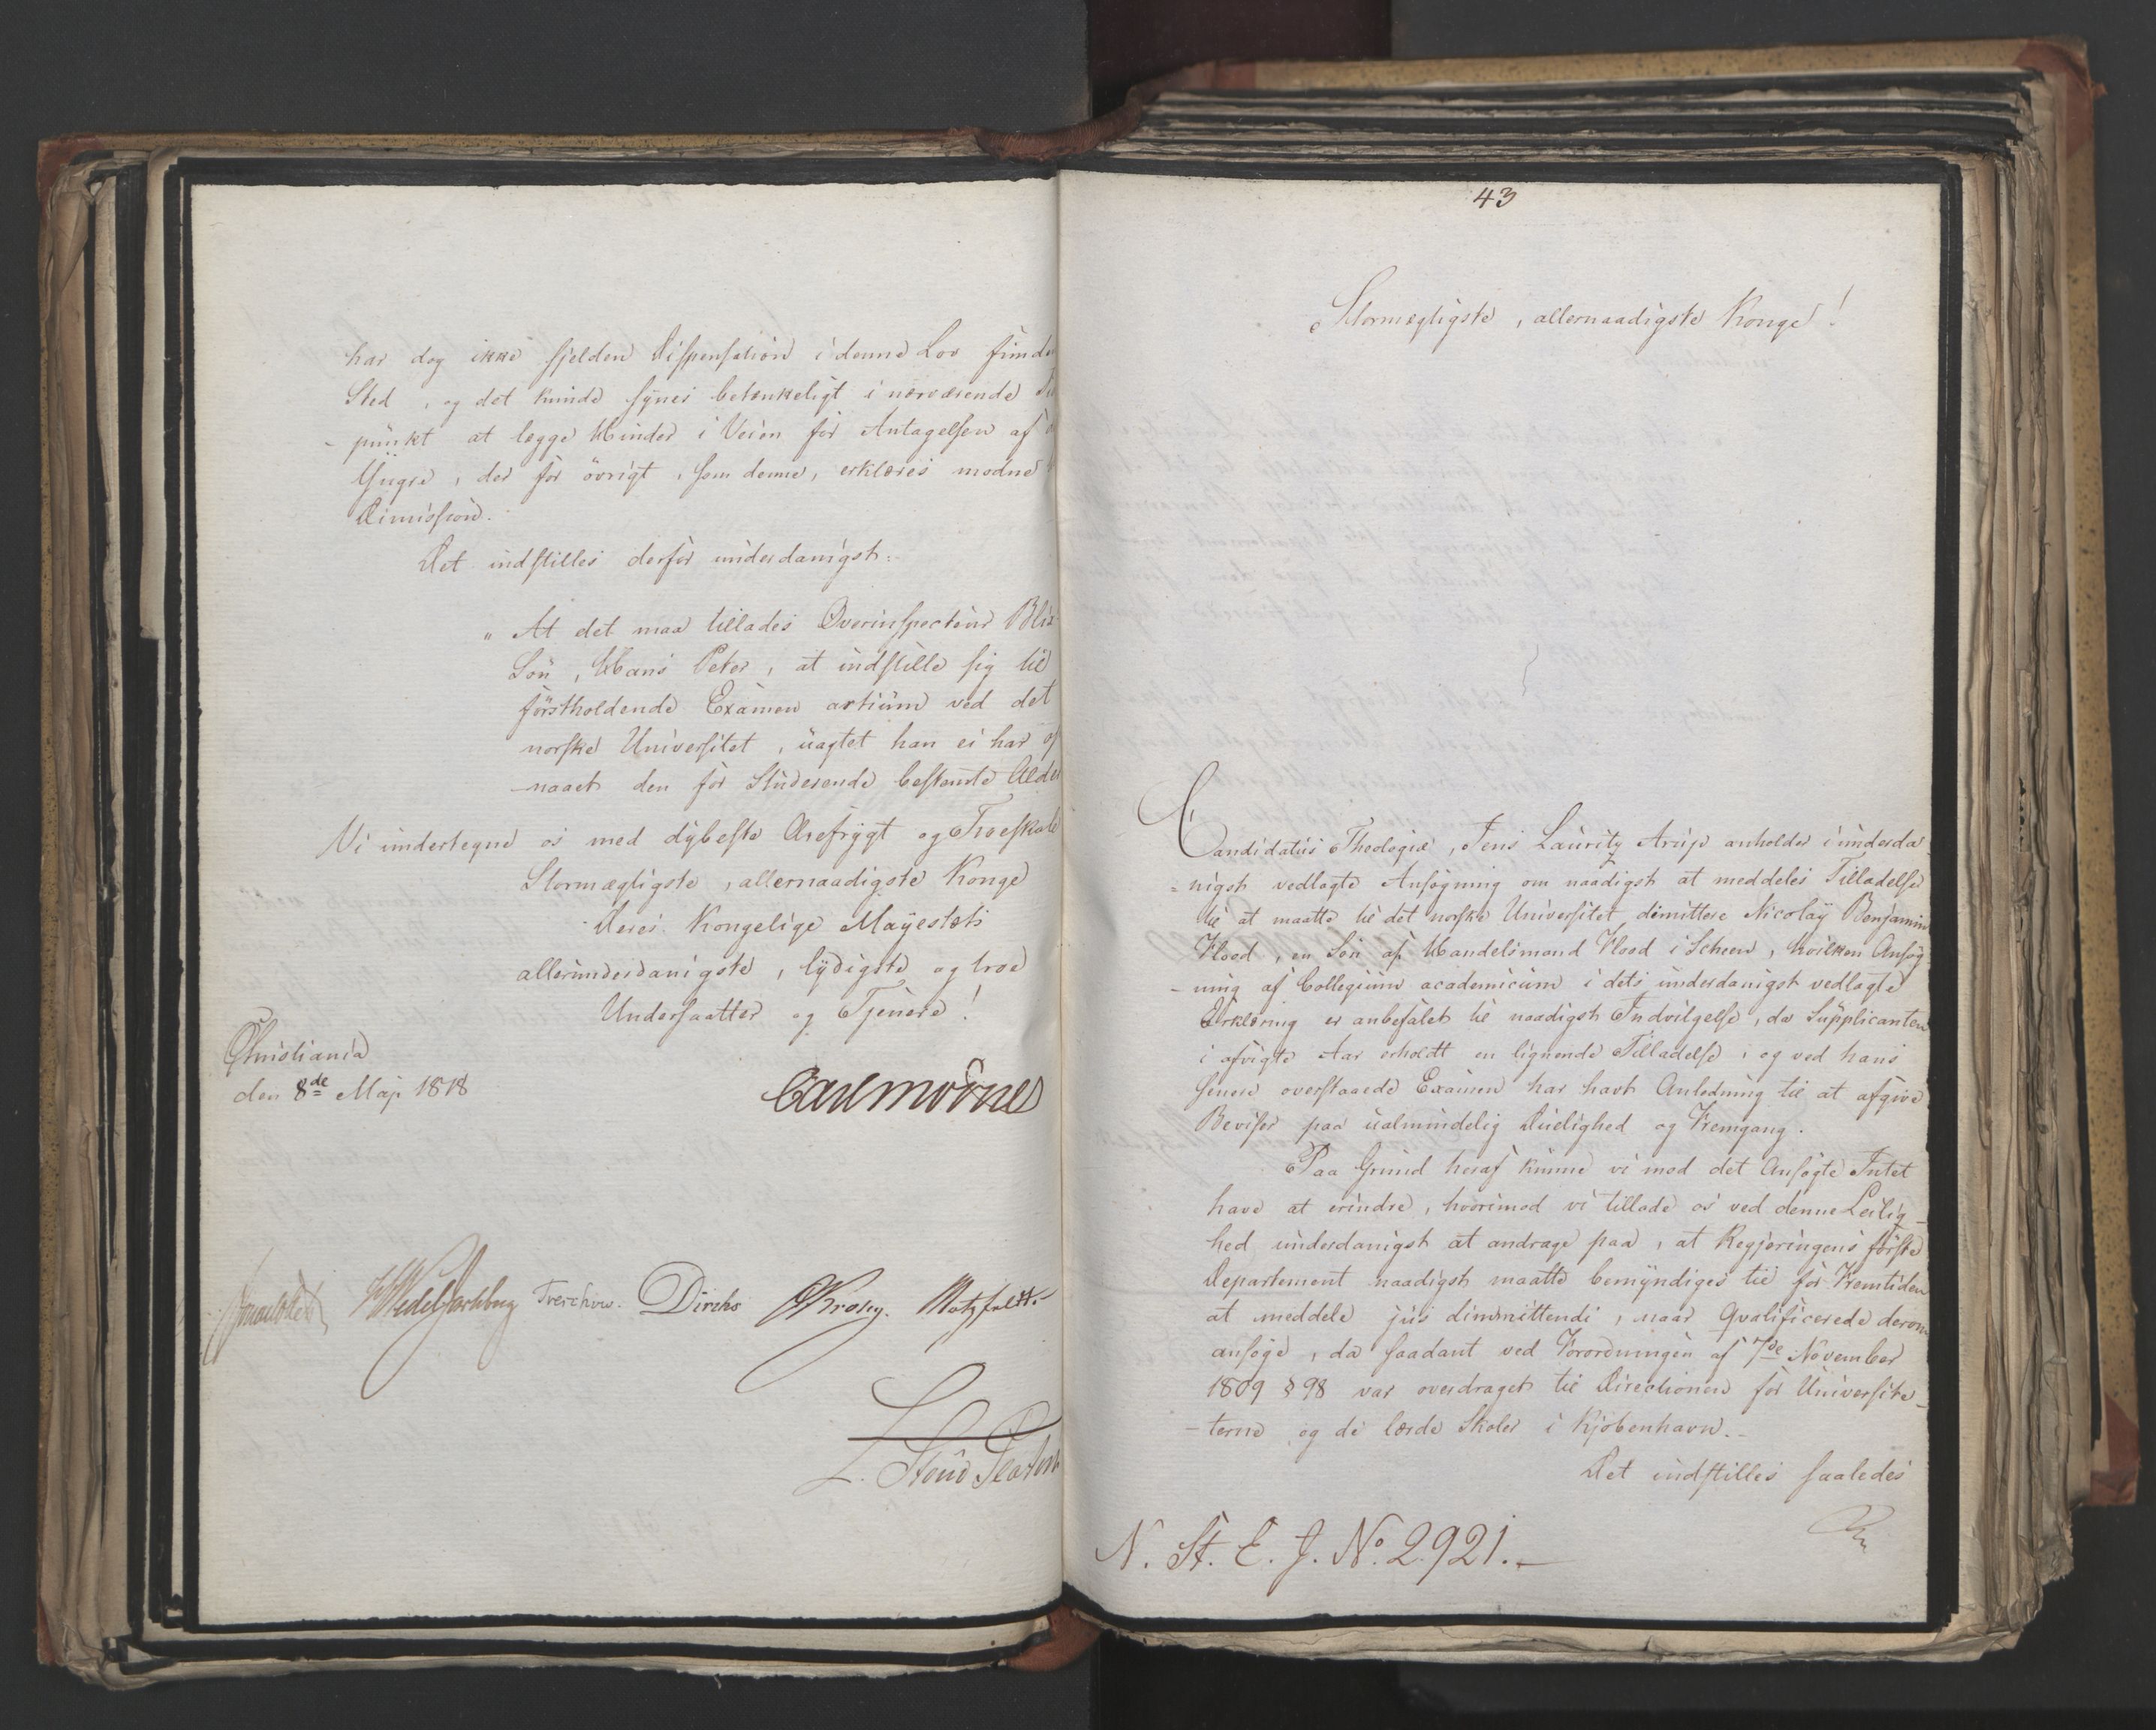 har dog ikke sjelden Dispensation i denne Lov funde
Sted, og det kunde synes betænkeligt i nærværende
-punkt at lægge Hinder i Veien for Antagelsen af
Yngre, der for övrigt, som denne, erklæres modne
Dimission.
Det indstilles derfor underdanigst:
"At det maa tillades Overinspecteur Blix
Sön, Hans Peter, at indstille sig til
förstholdende Examen artium ved det
norske Universitet, uagtet han ei har op
-naaet den for Studerende bestemte Alder
Vi undertegne os med dybeste Ærefrygt og Troeskab
Stormægtigste, allernaadigste Konge
Deres Kongelige Mayestæts
allerunderdanigste, lydigste og troe
Undersaatter og Tjenere!
Christiania
den 8de Maji 1818
Carl Mörner
Sommerhielm HWedel Jarlsberg Treschow. Diriks Krog. Motzfeldt.
L. Stoud Platou
43
Stormægtigste, allernaadigste Konge!
Candidatus Theologiæ, Jens Lauritz Arup anholder i underda
=nigst vedlagte Ansøgning om naadigst at meddeles Tilladelse
til at maatte til det norske Universitet dimittere Nicolay Benjamin
Flood, en Sön af Handelsmand Flood i Scheen, hvilken Ansøg
-ning af Collegium academicum i dets underdanigst vedlagte
Erklæring er anbefalet til naadigst Indvilgelse, da Supplicanten
i afvigte Aar erholdt en lignende Tilladelse, og ved hans
senere overstaaede Examen har havt Anledning til at afgive
Beviser paa ualmindelig Duelighed og Fremgang.
Paa Grund heraf kunne vi mod det Ansøgte Intet
have at erindre, hvorimod vi tillade os ved denne Leilig-
hed underdanigst at andrage paa, at Regjeringens förste
Departement naadigst maatte bemyndiges til for Fremtiden
at meddele jus dimmittendi, naar Qvalificerede derom
ansøge, da saadant ved Forordningen af 7de November
1809 § 98 var overdraget til Directionen for Universite-
-terne og de lærde Skoler i Kjøbenhavn.-
Det indstilles saaledes
N. St. E. J. No. 2921.-